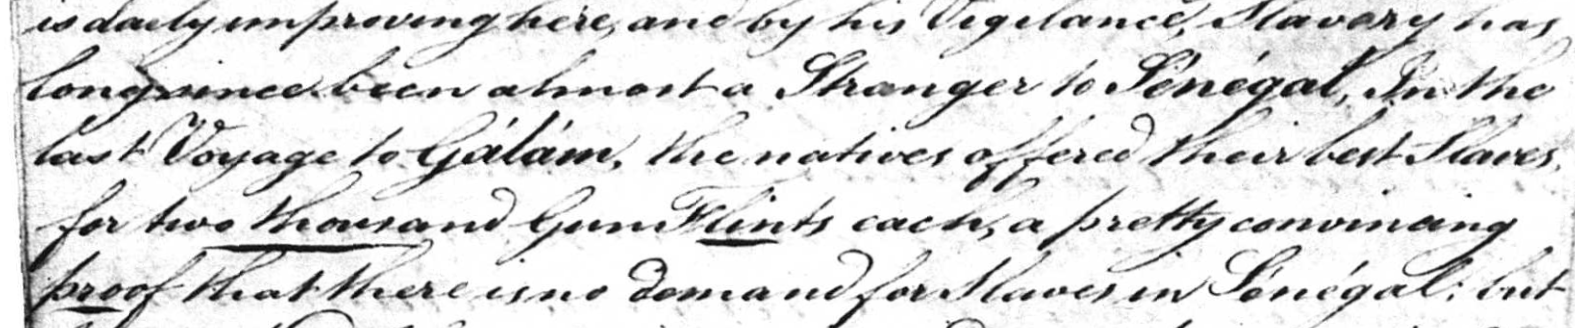 is daily improving here, and by his Vigilance, Slavery has
long since been almost a Stranger to Sénégal, In the
last Voyage to Gálám, the natives offered their best Slaves,
for two thousand Gun Flints each, a pretty convincing
proof that there is no demand for Slaves in Sénégal; but